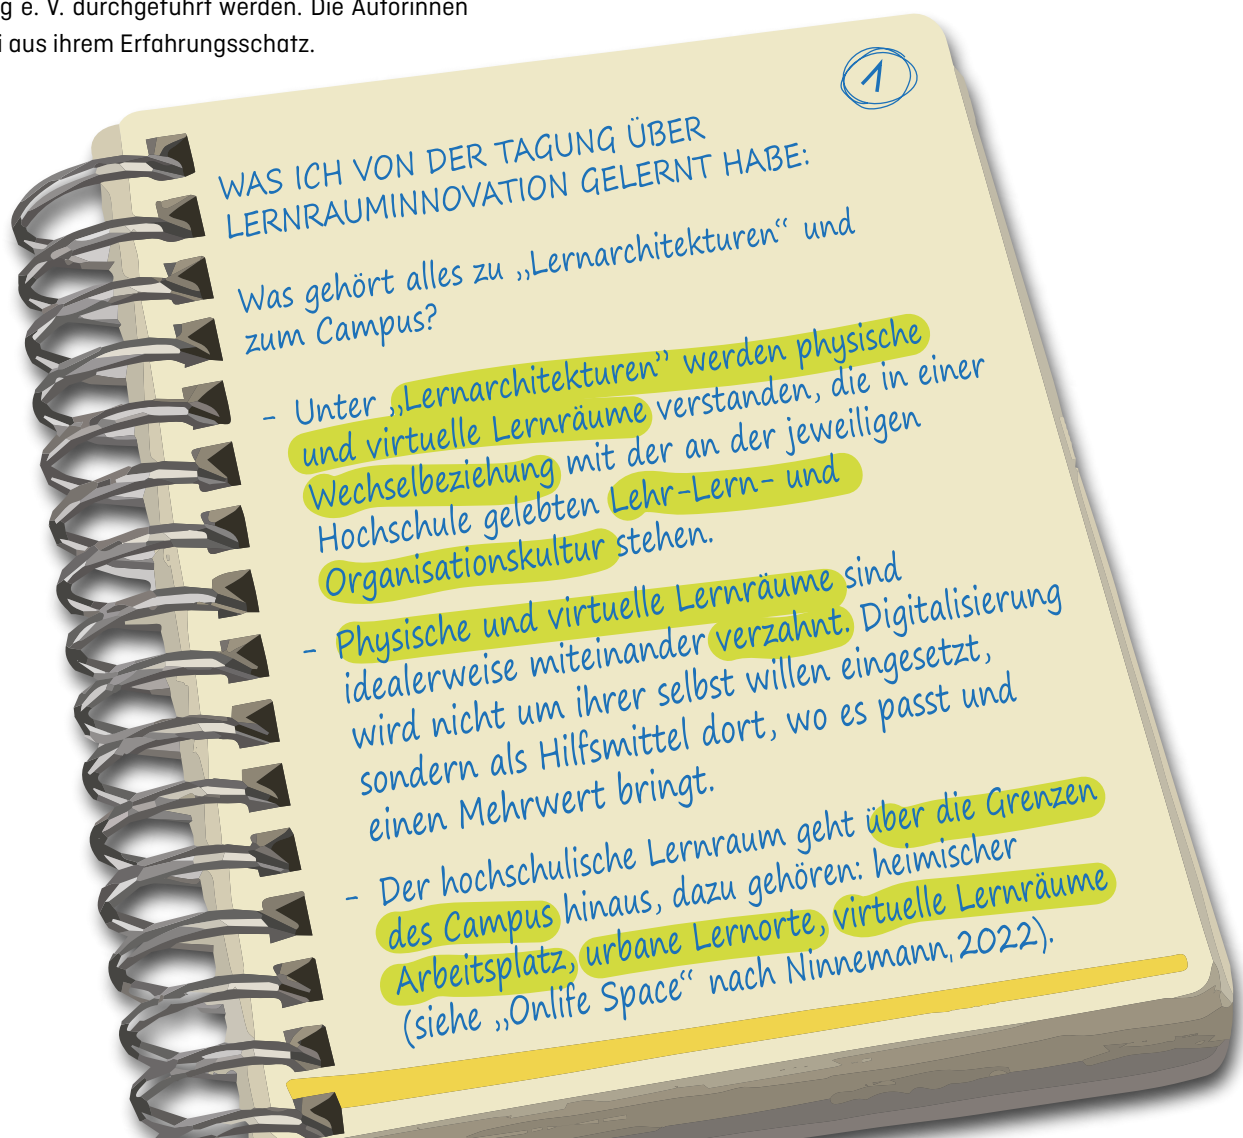 g e. V. durchgeführt werden. Die Autorinnen
i aus ihrem Erfahrungsschatz.
1
WAS ICH VON DER TAGUNG ÜBER
LERNRAUMINNOVATION GELERNT HABE:
Was gehört alles zu „Lernarchitekturen“ und
zum Campus?
- Unter „Lernarchitekturen” werden physische
und virtuelle Lernräume verstanden, die in einer
Wechselbeziehung mit der an der jeweiligen
Hochschule gelebten Lehr-Lern- und
Organisationskultur stehen.
- Physische und virtuelle Lernräume sind
idealerweise miteinander verzahnt. Digitalisierung
wird nicht um ihrer selbst willen eingesetzt,
sondern als Hilfsmittel dort, wo es passt und
einen Mehrwert bringt.
- Der hochschulische Lernraum geht über die Grenzen
des Campus hinaus, dazu gehören: heimischer
Arbeitsplatz, urbane Lernorte, virtuelle Lernräume
(siehe „Onlife Space“ nach Ninnemann, 2022).